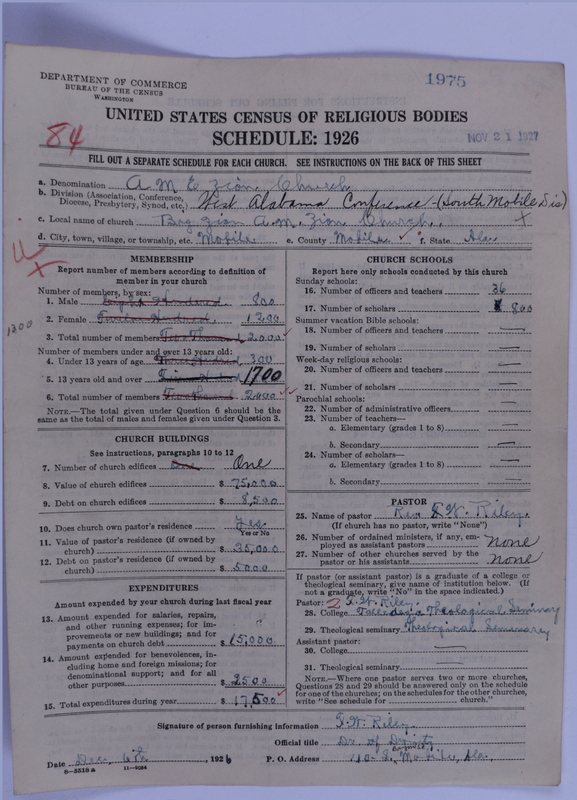 1975
DEPARTMENT OF COMMERCE
BUREAU OF THE CENSUS
WASHINGTON
UNITED STATES CENSUS OF RELIGIOUS BODIES
SCHEDULE: 1926
NOV 21 1927
84
FILL OUT A SEPARATE SCHEDULE FOR EACH CHURCH. SEE INSTRUCTIONS ON THE BACK OF THIS SHEET
a. Denomination A. M. E. Zion, Church
b. Division (Association, Conference, Diocese, Presbytery, Synod, etc.) West Alabama Conference (South Mobile Dis)
c. Local name of church Big Zion A.M. Zion Church
d. City, town, village, or township, etc. Mobile e. County Mobile f. State Ala.
MEMBERSHIP
Report number of members according to definition of
member in your church
Number of members, by sex:
1. Male Eight Hundred 800
1200
2. Female Twelve Hundred 1200
3. Total number of members Two Thous 2000
Number of members under and over 13 years old:
4. Under 13 years of age Three Hundred 300
5. 13 years old and over 1700
6. Total number of members Two Thousand 2000
NOTE.—The total given under Question 6 should be the
same as the total of males and females given under Question 3.
CHURCH BUILDINGS
See instructions, paragraphs 10 to 12
7. Number of church edifices One One
8. Value of church edifices $ 75,000
9. Debt on church edifices $ 8,500
10. Does church own pastor's residence Yes
Yes or No
11. Value of pastor's residence (if owned by
church) $ 35,000
12. Debt on pastor's residence (if owned by
church) $ 5000
EXPENDITURES
Amount expended by your church during last fiscal year
13. Amount expended for salaries, repairs,
and other running expenses; for im-
provements or new buildings; and for
payments on church debt $ 15,000
14. Amount expended for benevolences, in-
cluding home and foreign missions; for
denominational support; and for all
other purposes $ 2500
15. Total expenditures during year $ 17,500
CHURCH SCHOOLS
Report here only schools conducted by this church
Sunday schools:
16. Number of officers and teachers 36
17. Number of scholars 800
Summer vacation Bible schools:
18. Number of officers and teachers —
19. Number of scholars —
Week-day religious schools:
20. Number of officers and teachers —
21. Number of scholars —
Parochial schools:
22. Number of administrative officers —
23. Number of teachers—
a. Elementary (grades 1 to 8) —
b. Secondary —
24. Number of scholars—
a. Elementary (grades 1 to 8) —
b. Secondary —
PASTOR
25. Name of pastor Rev. S. W. Riley.
(If church has no pastor, write "None")
26. Number of ordained ministers, if any, em-
ployed as assistant pastors None
27. Number of other churches served by the
pastor or his assistants None
If pastor (or assistant pastor) is a graduate of a college or
theological seminary, give name of institution below. (If
not a graduate, write "No" in the space indicated.)
Pastor: 2 S. W. Riley
28. College Talledega Theological Seminary
29. Theological seminary Theological Seminarey
Assistant pastor:
30. College —
31. Theological seminary —
NOTE.—Where one pastor serves two or more churches,
Questions 28 and 29 should be answered only on the schedule
for one of the churches; on the schedules for the other churches,
write "See schedule for church."
Signature of person furnishing information S. W. Riley
Official title Dr. of Divinity
Date Dec. 6th 1926 P. O. Address Mobile, Ala.
8—5518 a 11—9034